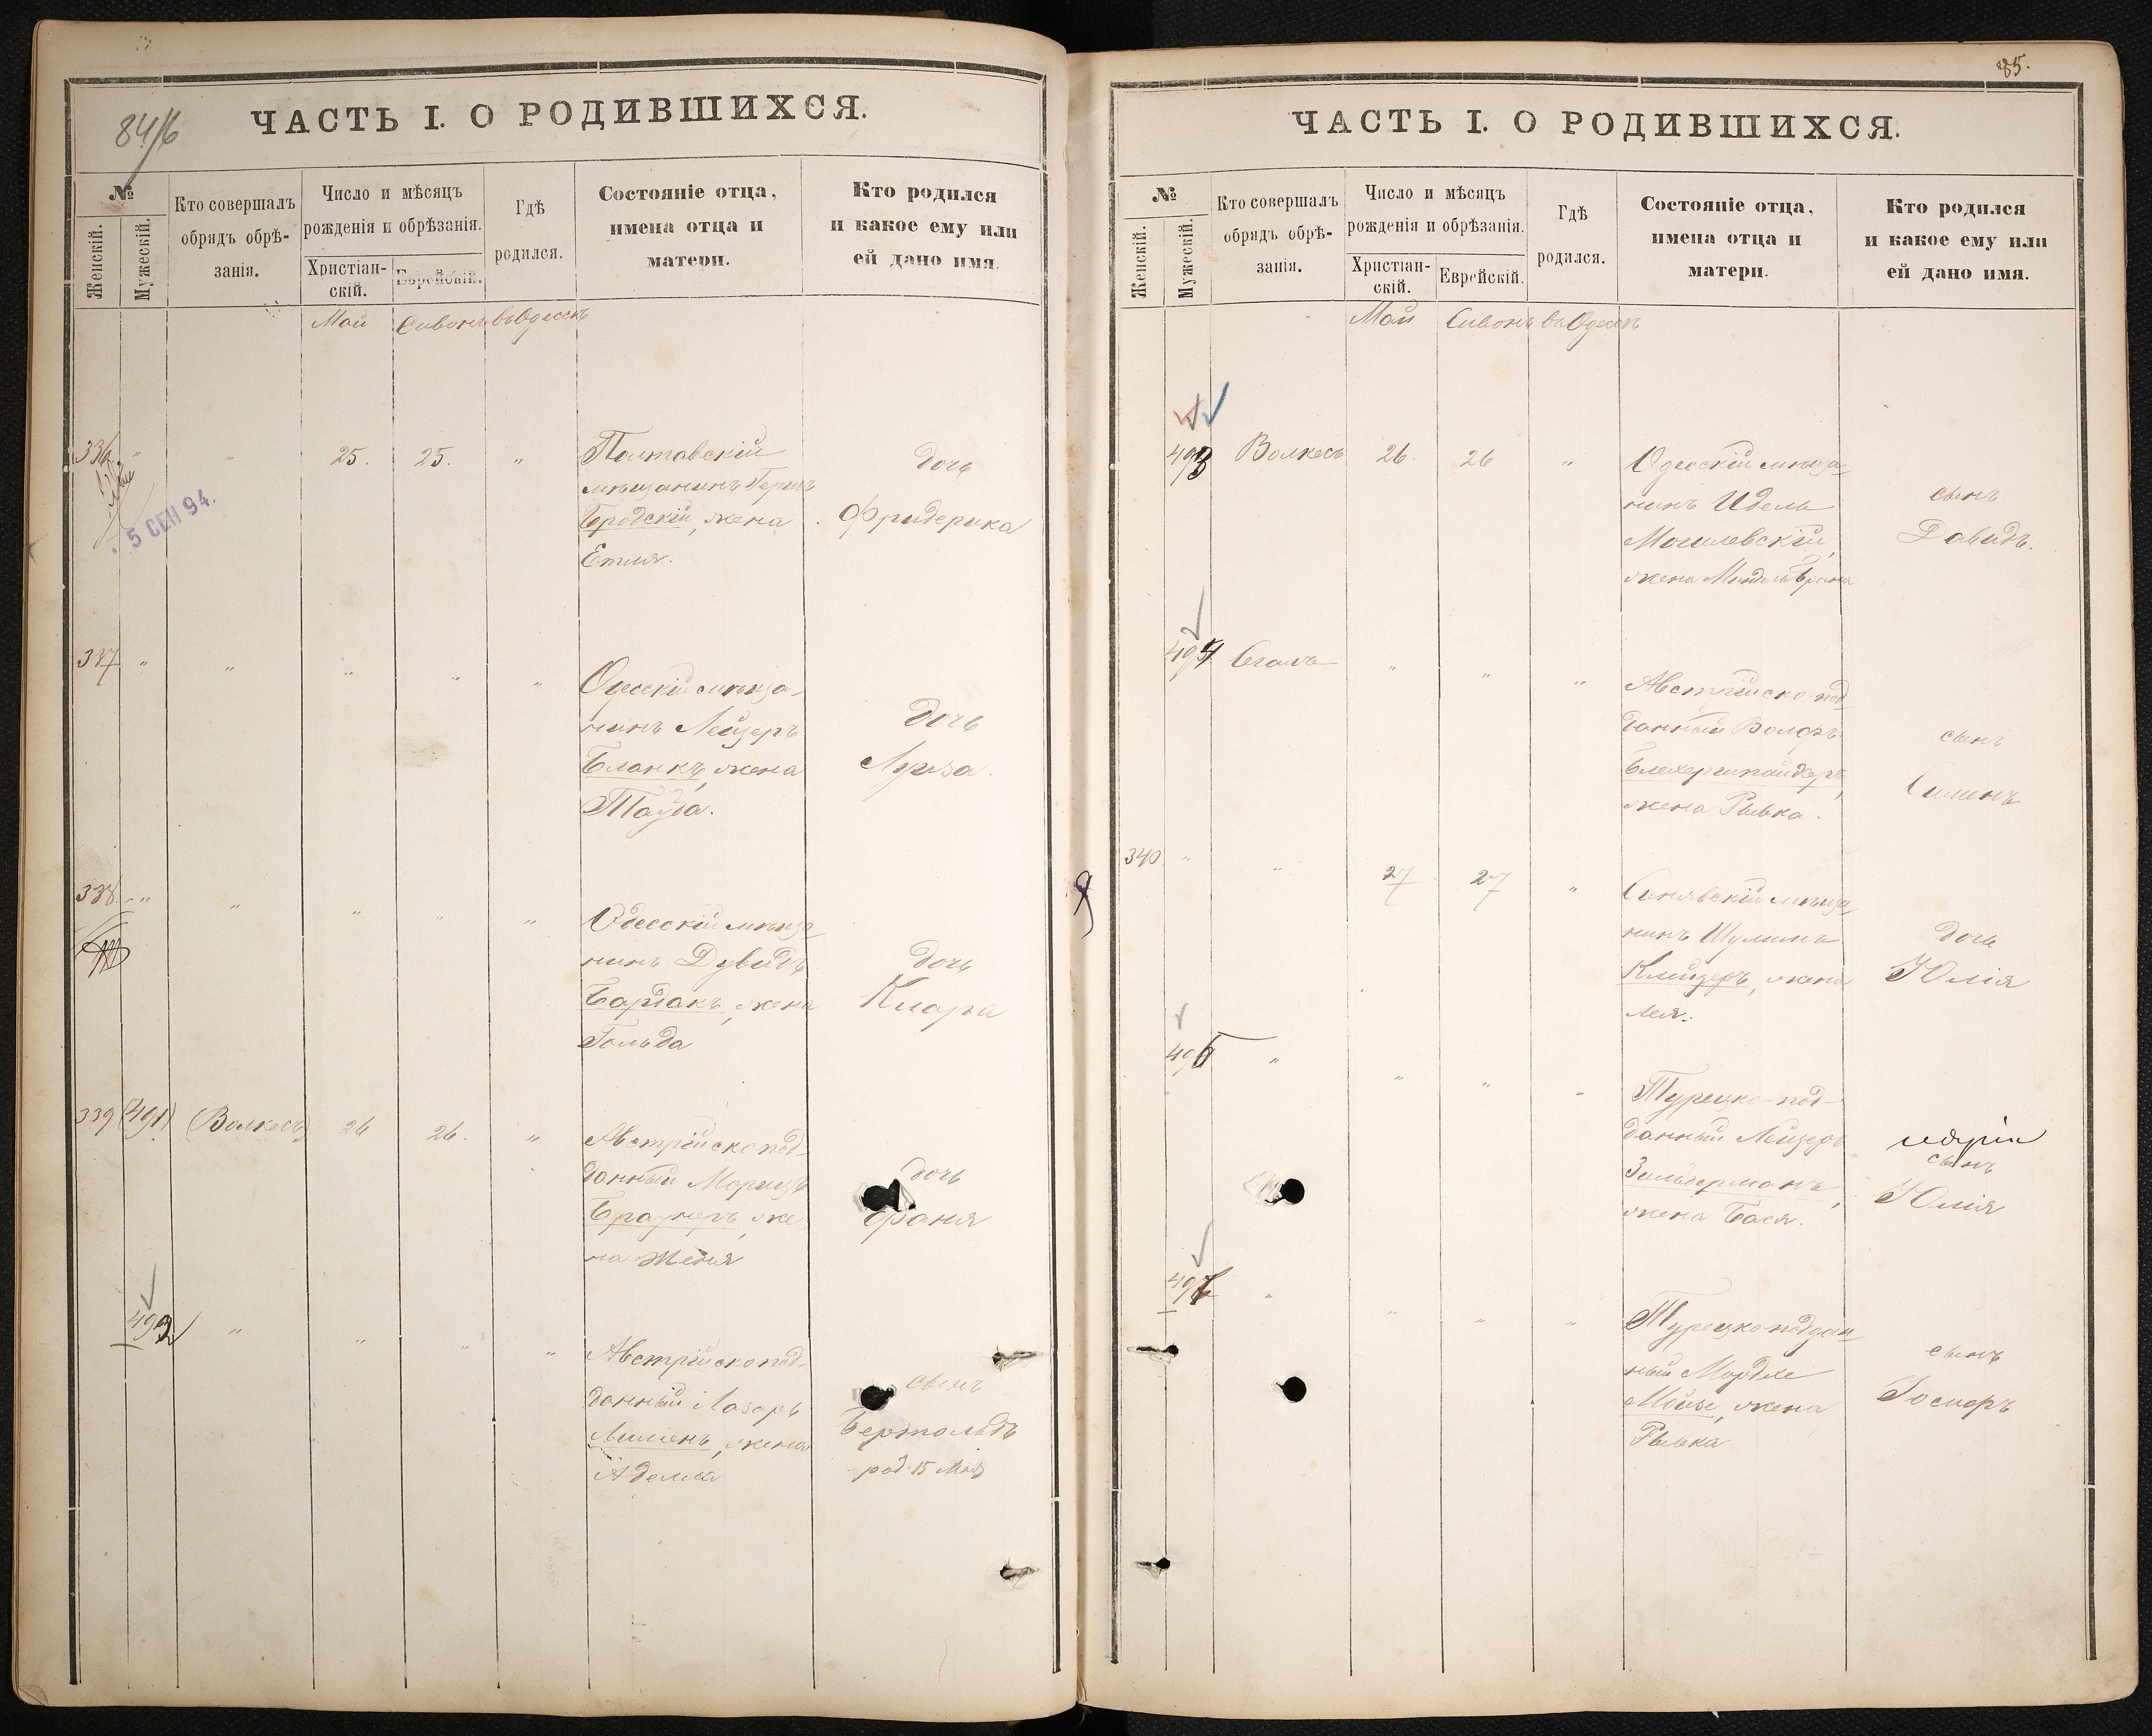 84/6
ЧАСТЬ I. О РОДИВШИХСЯ.
№
Женскій.
Мужескій.
Кто совершалъ
обрядъ обрѣ-
занія.
Число и мѣсяцъ
рожденія и обрѣзанія.
Христіан-
скій.
Еврейскій.
Гдѣ
родился.
Состояніе отца,
имена отца и
матери.
Кто родился
и какое ему или
ей дано имя.
Май Сивонъ въ Одессѣ
336 " " 25. 25. "
5 СЕН 94.
Полтавскій
мѣщанинъ Гершъ
Бродскій, жена
Етля.
дочь
Фридерика
337 " " " " "
Одесскій мѣща-
нинъ Лейзеръ
Бланкъ, жена
Тауба.
дочь
Луиза.
338 " " " " "
Одесскій мѣща
нинъ Дувидъ
Бардакъ, жена
Гольда
дочь
Клара
339 (491) (Волкесъ) 26 26. "
Австрійско под-
данный Морицъ
же
на Женя
дочь
Фаня
492 " " " "
Австрійско под-
данный Лазарь
жена
Аделя
сынъ
Бертольдъ
род. 15 Мая
85.
ЧАСТЬ I. О РОДИВШИХСЯ.
№
Женскій.
Мужескій.
Кто совершалъ
обрядъ обрѣ-
занія.
Число и мѣсяцъ
рожденія и обрѣзанія.
Христіан-
скій.
Еврейскій.
Гдѣ
родился.
Состояніе отца,
имена отца и
матери.
Кто родился
и какое ему или
ей дано имя.
Май Сивонъ въ Одессѣ
493 Волкесъ 26. 26 "
Одесскій мѣща
нинъ Идель
Могилевскій,
жена Миндля Брана
сынъ
Давидъ.
494 Сегалъ " " "
Австрійско-под
данный Волфъ
жена Рывка.
сынъ
Сименъ
340 " " 27 27 "
Синявскій мѣща
нинъ Шулимъ
Клейзеръ, жена
Лея.
дочь
Юлія
495 " " " "
Турецко-под-
данный Лейзеръ
Зильберманъ,
жена Бася.
сынъ
Юлія
496 " " " "
Турецко поддан
ный Мордхе
Мойзе, жена
Рывка
сынъ
Іосифъ